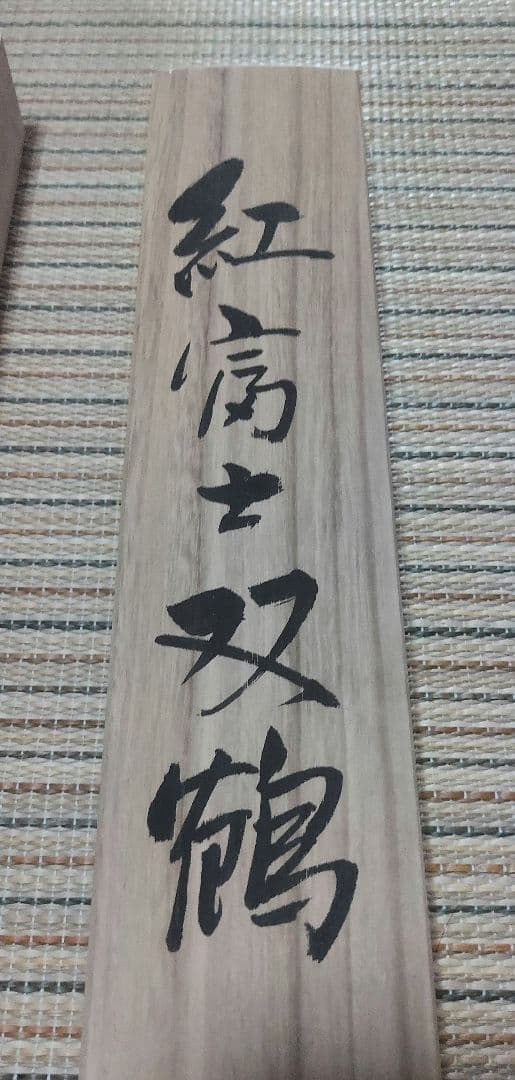 紅富士双鶴